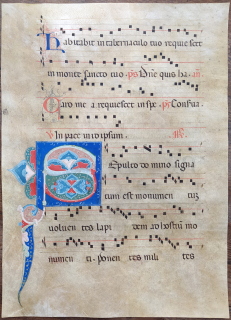 Habitabit in tabernaculo tuo requiescet
in monte sancto tuo. ps Dñe quis ha. añ
Caro mea requiescet in spe. ps Conserva
V In pace in idipsum.
Sepulto domino signa
tum est monumen tuz
volven tes lapi dem ad hostiũ mo
numen ti. ponen tes mili tes